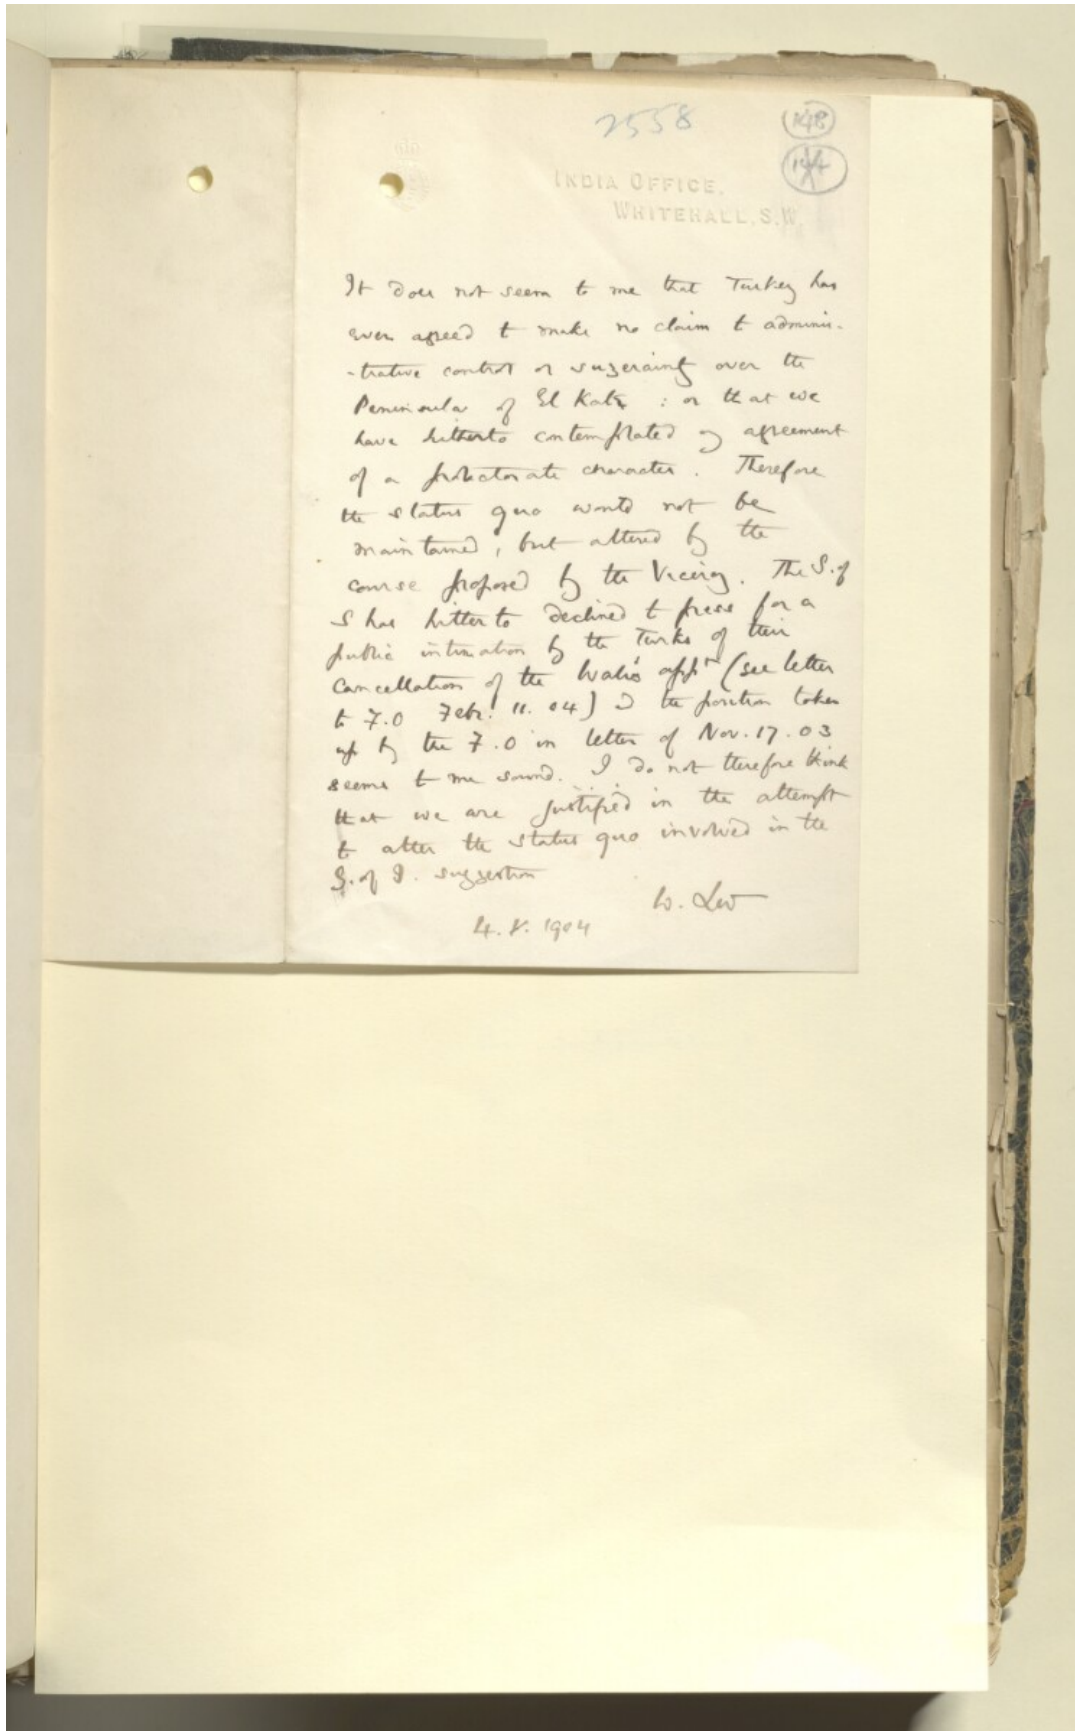 2558
148
144
INDIA OFFICE.
WHITEHALL, S.W.
It does not seem to me that Turkey has
ever agreed to make no claim to adminis-
-trative control or suzerainty over the
Peninsula of El Katr : or that we
have hitherto contemplated an agreement
of a protectorate character. Therefore
the status quo would not be
maintained, but altered by the
course proposed by the Viceroy. The S. of
S has hitherto declined to press for a
public intimation by the Turks of their
cancellation of the Wali's appt (see letter
to F.O Feb: 11. 04) & the position taken
up by the F.O in letter of Nov. 17. 03
seems to me sound. I do not therefore think
that we are justified in the attempt
to alter the status quo involved in the
G. of I. suggestion
W. Lee
4. 8. 1904